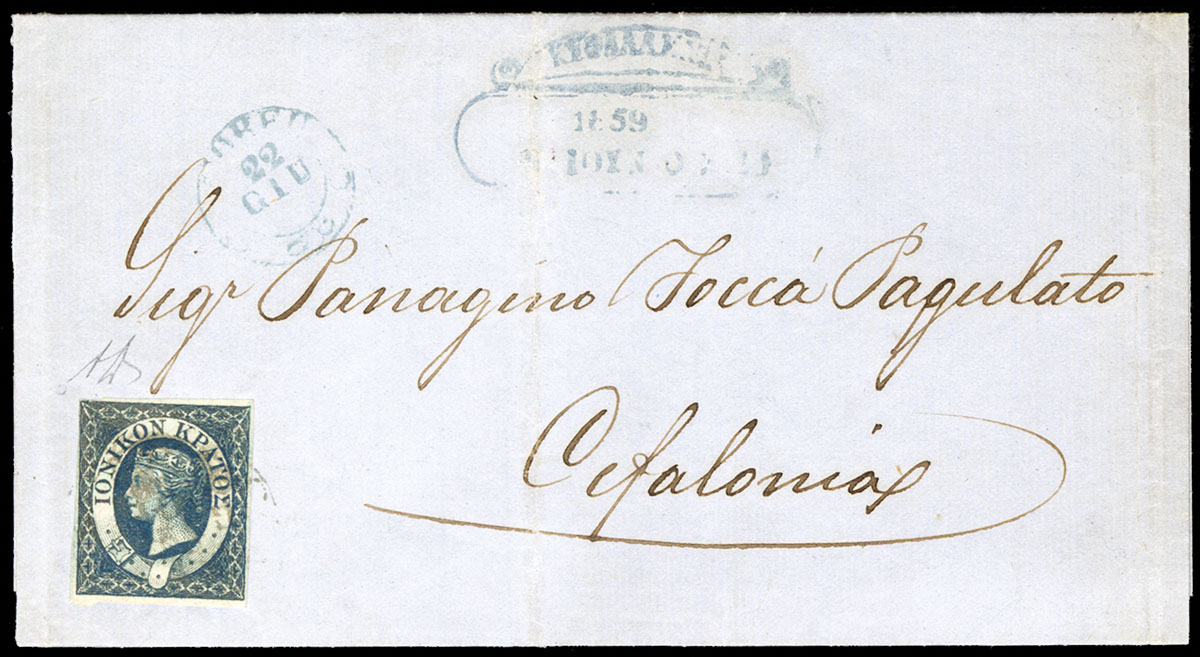 ΚΕΦΑΛΛΗΝ
1859
ΙΟΥΝ
22
GIU
Sigr Panagino Toccá Pagulato
Cefalonia
ΙΟΝΙΚΟΝ ΚΡΑΤΟΣ